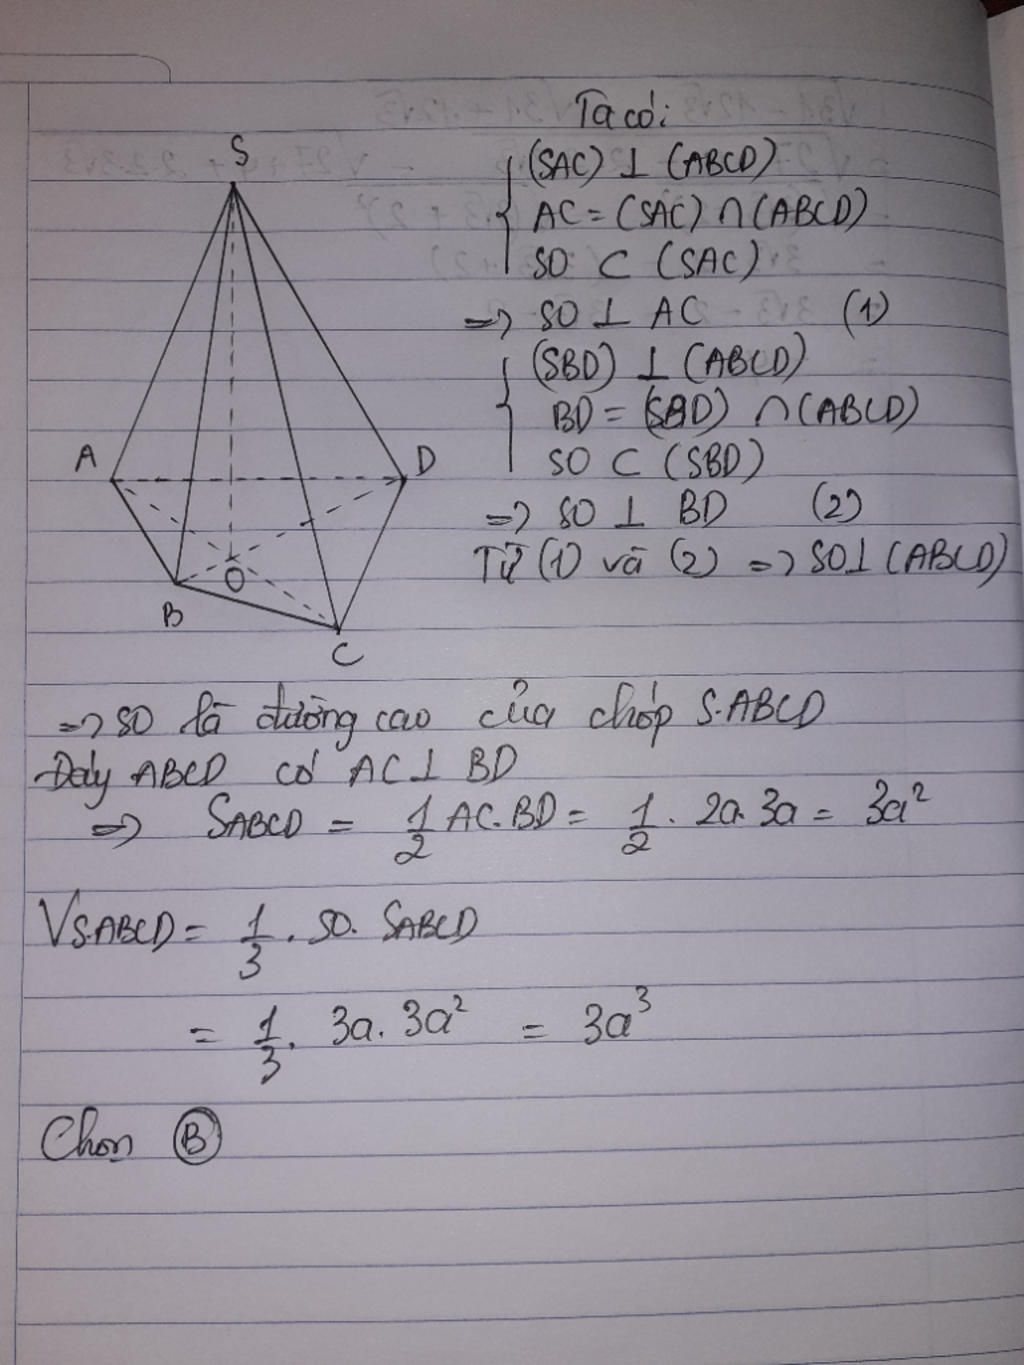 Ta có:
(SAC) ⊥ (ABCD)
AC = (SAC) ∩ (ABCD)
SO ⊂ (SAC)
=> SO ⊥ AC (1)
(SBD) ⊥ (ABCD)
BD = (SBD) ∩ (ABCD)
SO ⊂ (SBD)
=> SO ⊥ BD (2)
Từ (1) và (2) => SO ⊥ (ABCD)
S
A
D
O
B
C
=> SO là đường cao của chóp S.ABCD
Đáy ABCD có AC ⊥ BD
=> SABCD = 1/2 AC.BD = 1/2 . 2a.3a = 3a²
VS.ABCD = 1/3 . SO. SABCD
= 1/3 . 3a. 3a² = 3a³
Chọn B